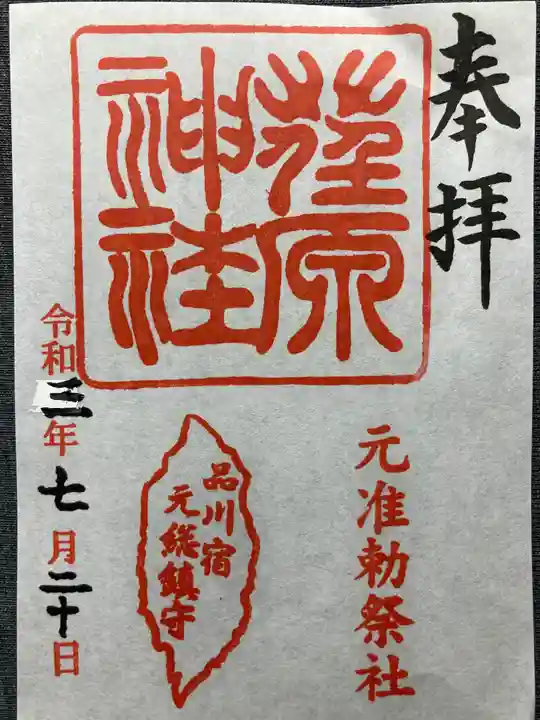 奉拝
荏原神社
元准勅祭社
品川宿
元総鎮守
令和三年七月二十日